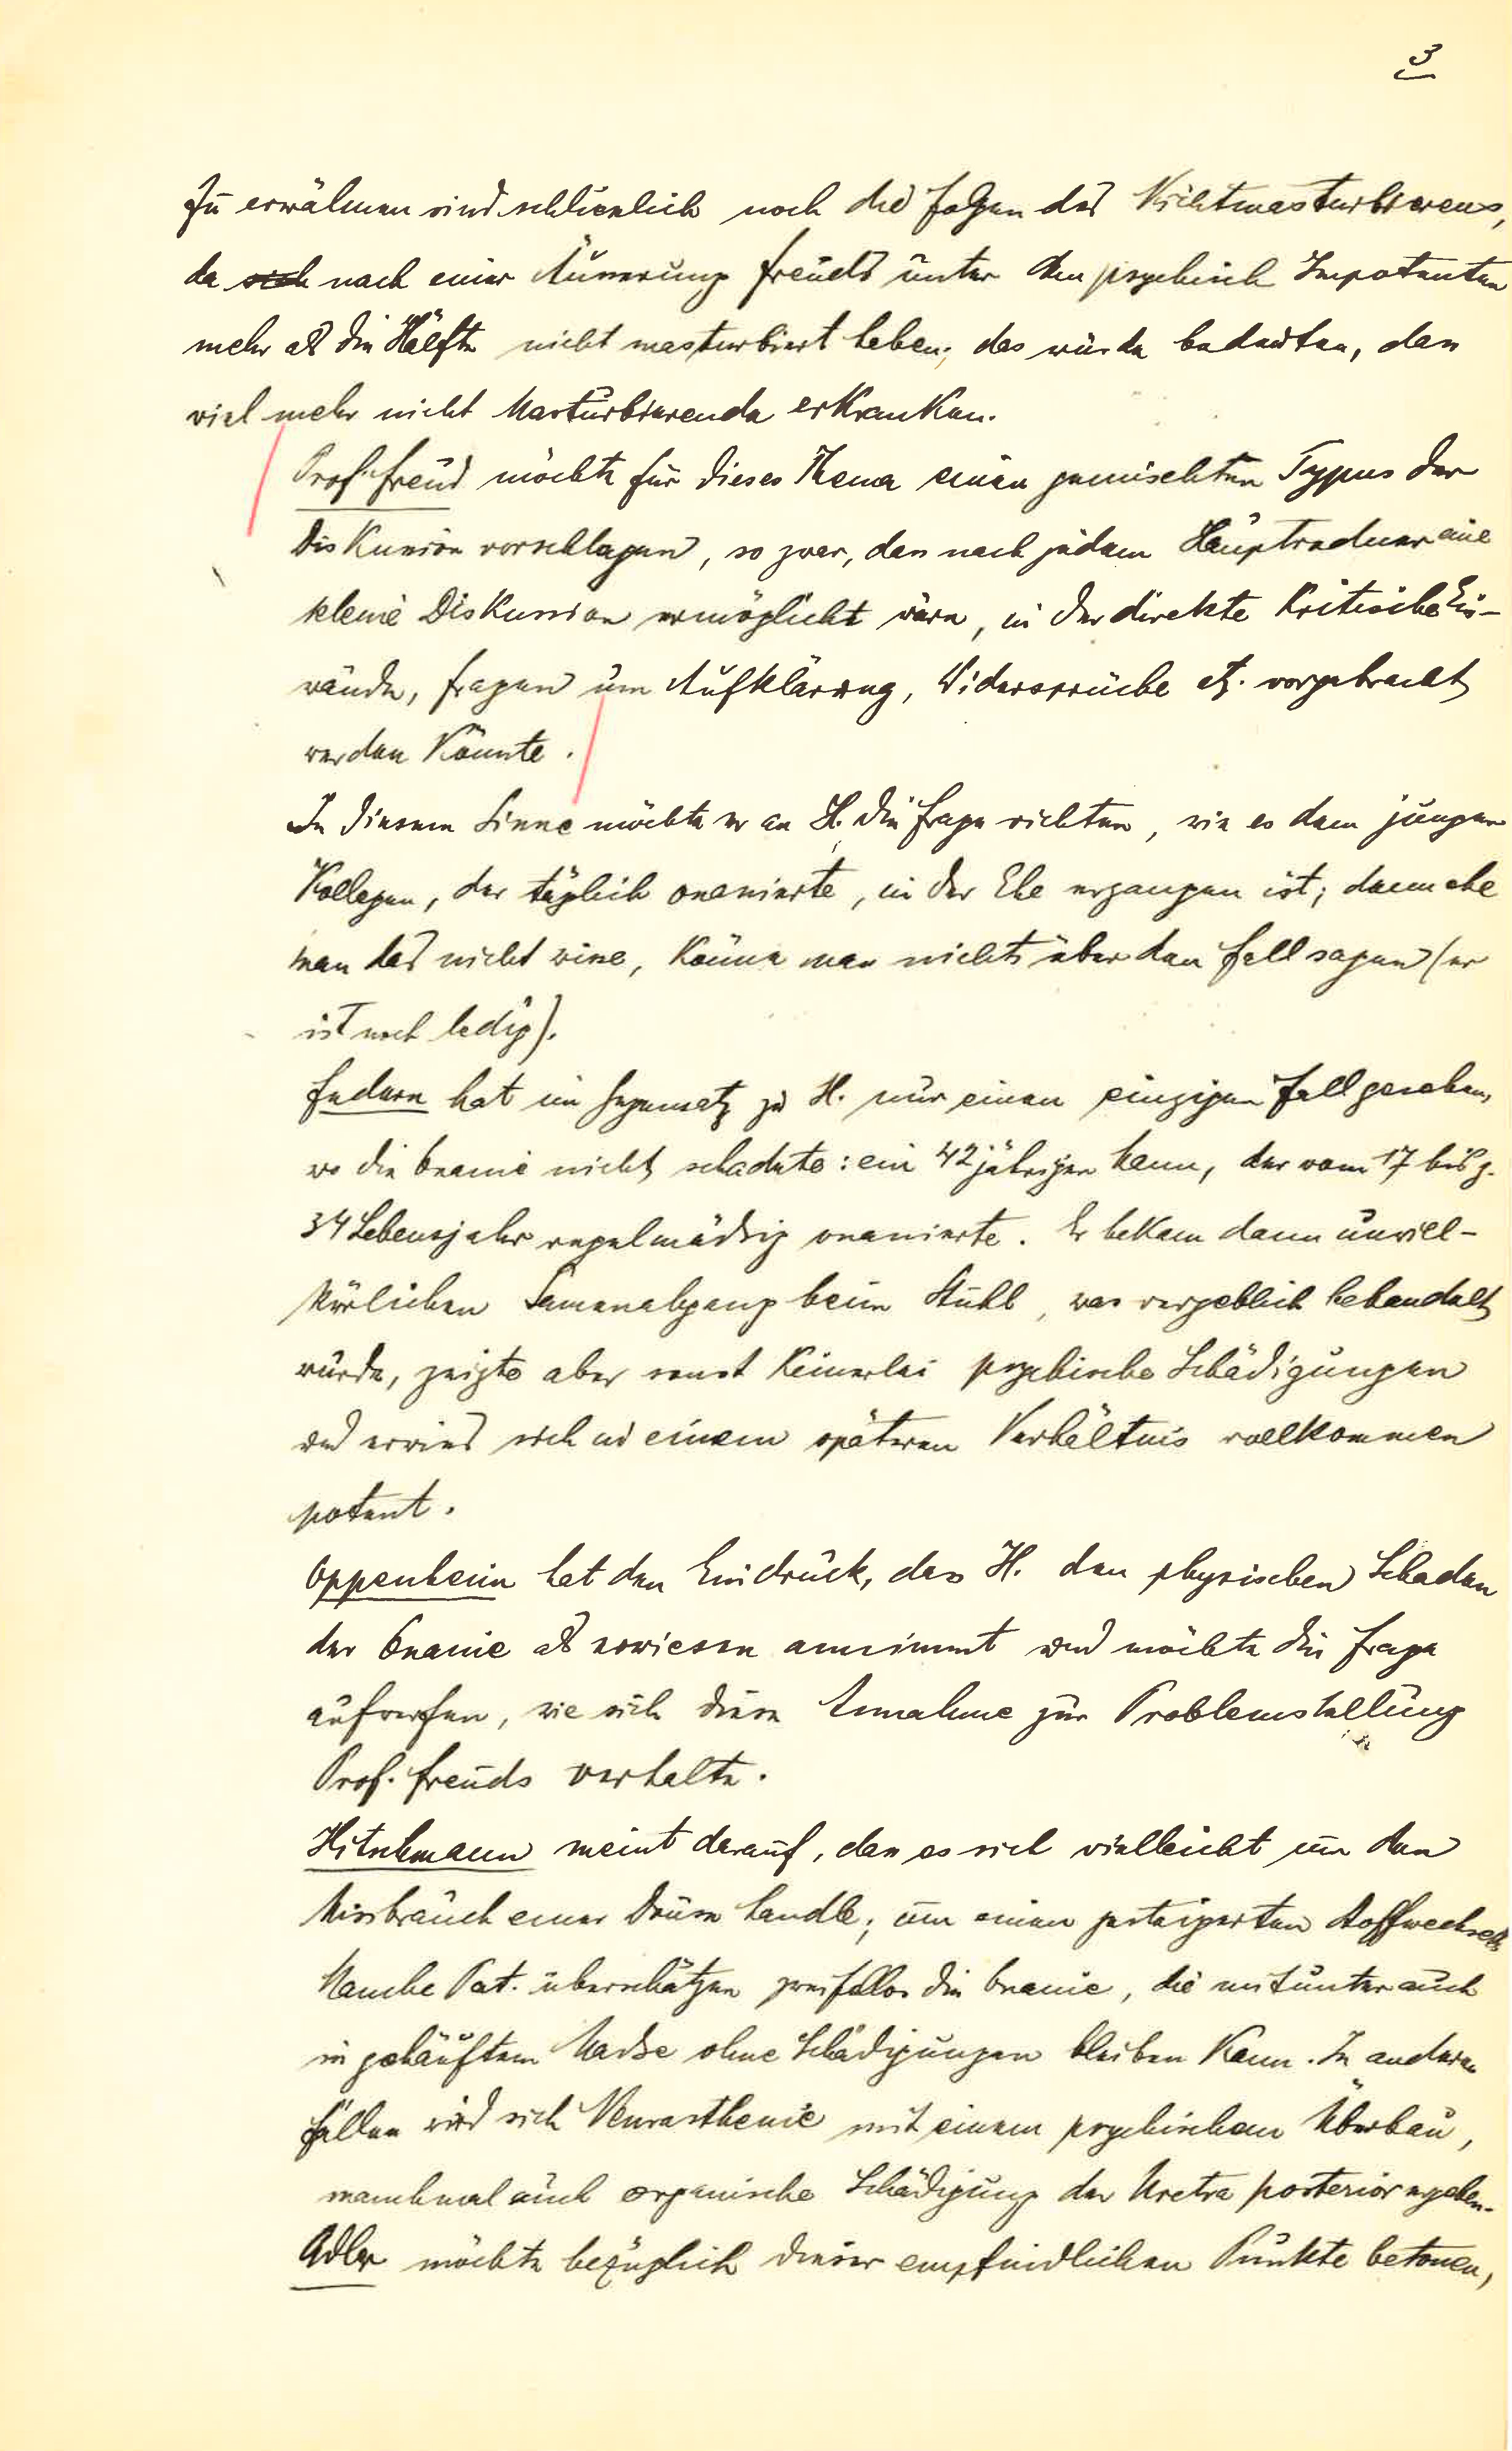 3
Zu erwähnen sind schließlich noch die Folgen des Nichtmasturbierens,
da sich nach einer Äußerung Freuds unter den psychisch Impotenten
mehr als die Hälfte nicht masturbiert haben; das würde bedeuten, daß
viel mehr nicht Masturbierende erkranken.
Prof. Freud möchte für dieses Thema einen gemischten Typus der
Diskussion vorschlagen, so zwar, daß nach jedem Hauptredner eine
kleine Diskussion ermöglicht wäre, in der direkte kritische Ein-
wände, Fragen um Aufklärung, Widersprüche etz. vorgebracht
werden könnte.
In diesem Sinne möchte er an H. die Frage richten, wie es dem jungen
Kollegen, der täglich onanierte, in der Ehe ergangen ist; denn ehe
man das nicht wisse, könne man nichts über den Fall sagen (er
ist noch ledig).
Federn hat im Gegensatz zu H. nur einen einzigen Fall gesehen,
wo die Onanie nicht schadete: ein 42jähriger Mann, der vom 17 bis z.
34 Lebensjahr regelmäßig onanierte. Er bekam dann unwill-
kürlichen Samenabgang beim Stuhl, was vergeblich behandelt
wurde, zeigte aber sonst keinerlei psychische Schädigungen
und erwies sich in einem späteren Verhältnis vollkommen
potent.
Oppenheim hat den Eindruck, dass H. den physischen Schaden
der Onanie als erwiesen annimmt und möchte die Frage
aufwerfen, wie sich diese Annahme zur Problemstellung
Prof. Freuds verhalte.
Hitschmann meint darauf, daß es sich vielleicht um den
Missbrauch einer Drüse handle; um einen gesteigerten Stoffwechsel.
Manche Pat. überschätzen zweifellos die Onanie, die mitunter auch
in gehäuftem Maße ohne Schädigungen bleiben kann. In anderen
Fällen wird sich Neurasthenie mit einem psychischen Überbau,
manchmal auch organische Schädigung der Uretra posterior ergeben.
Adler möchte bezüglich dieser empfindlichen Punkte betonen,